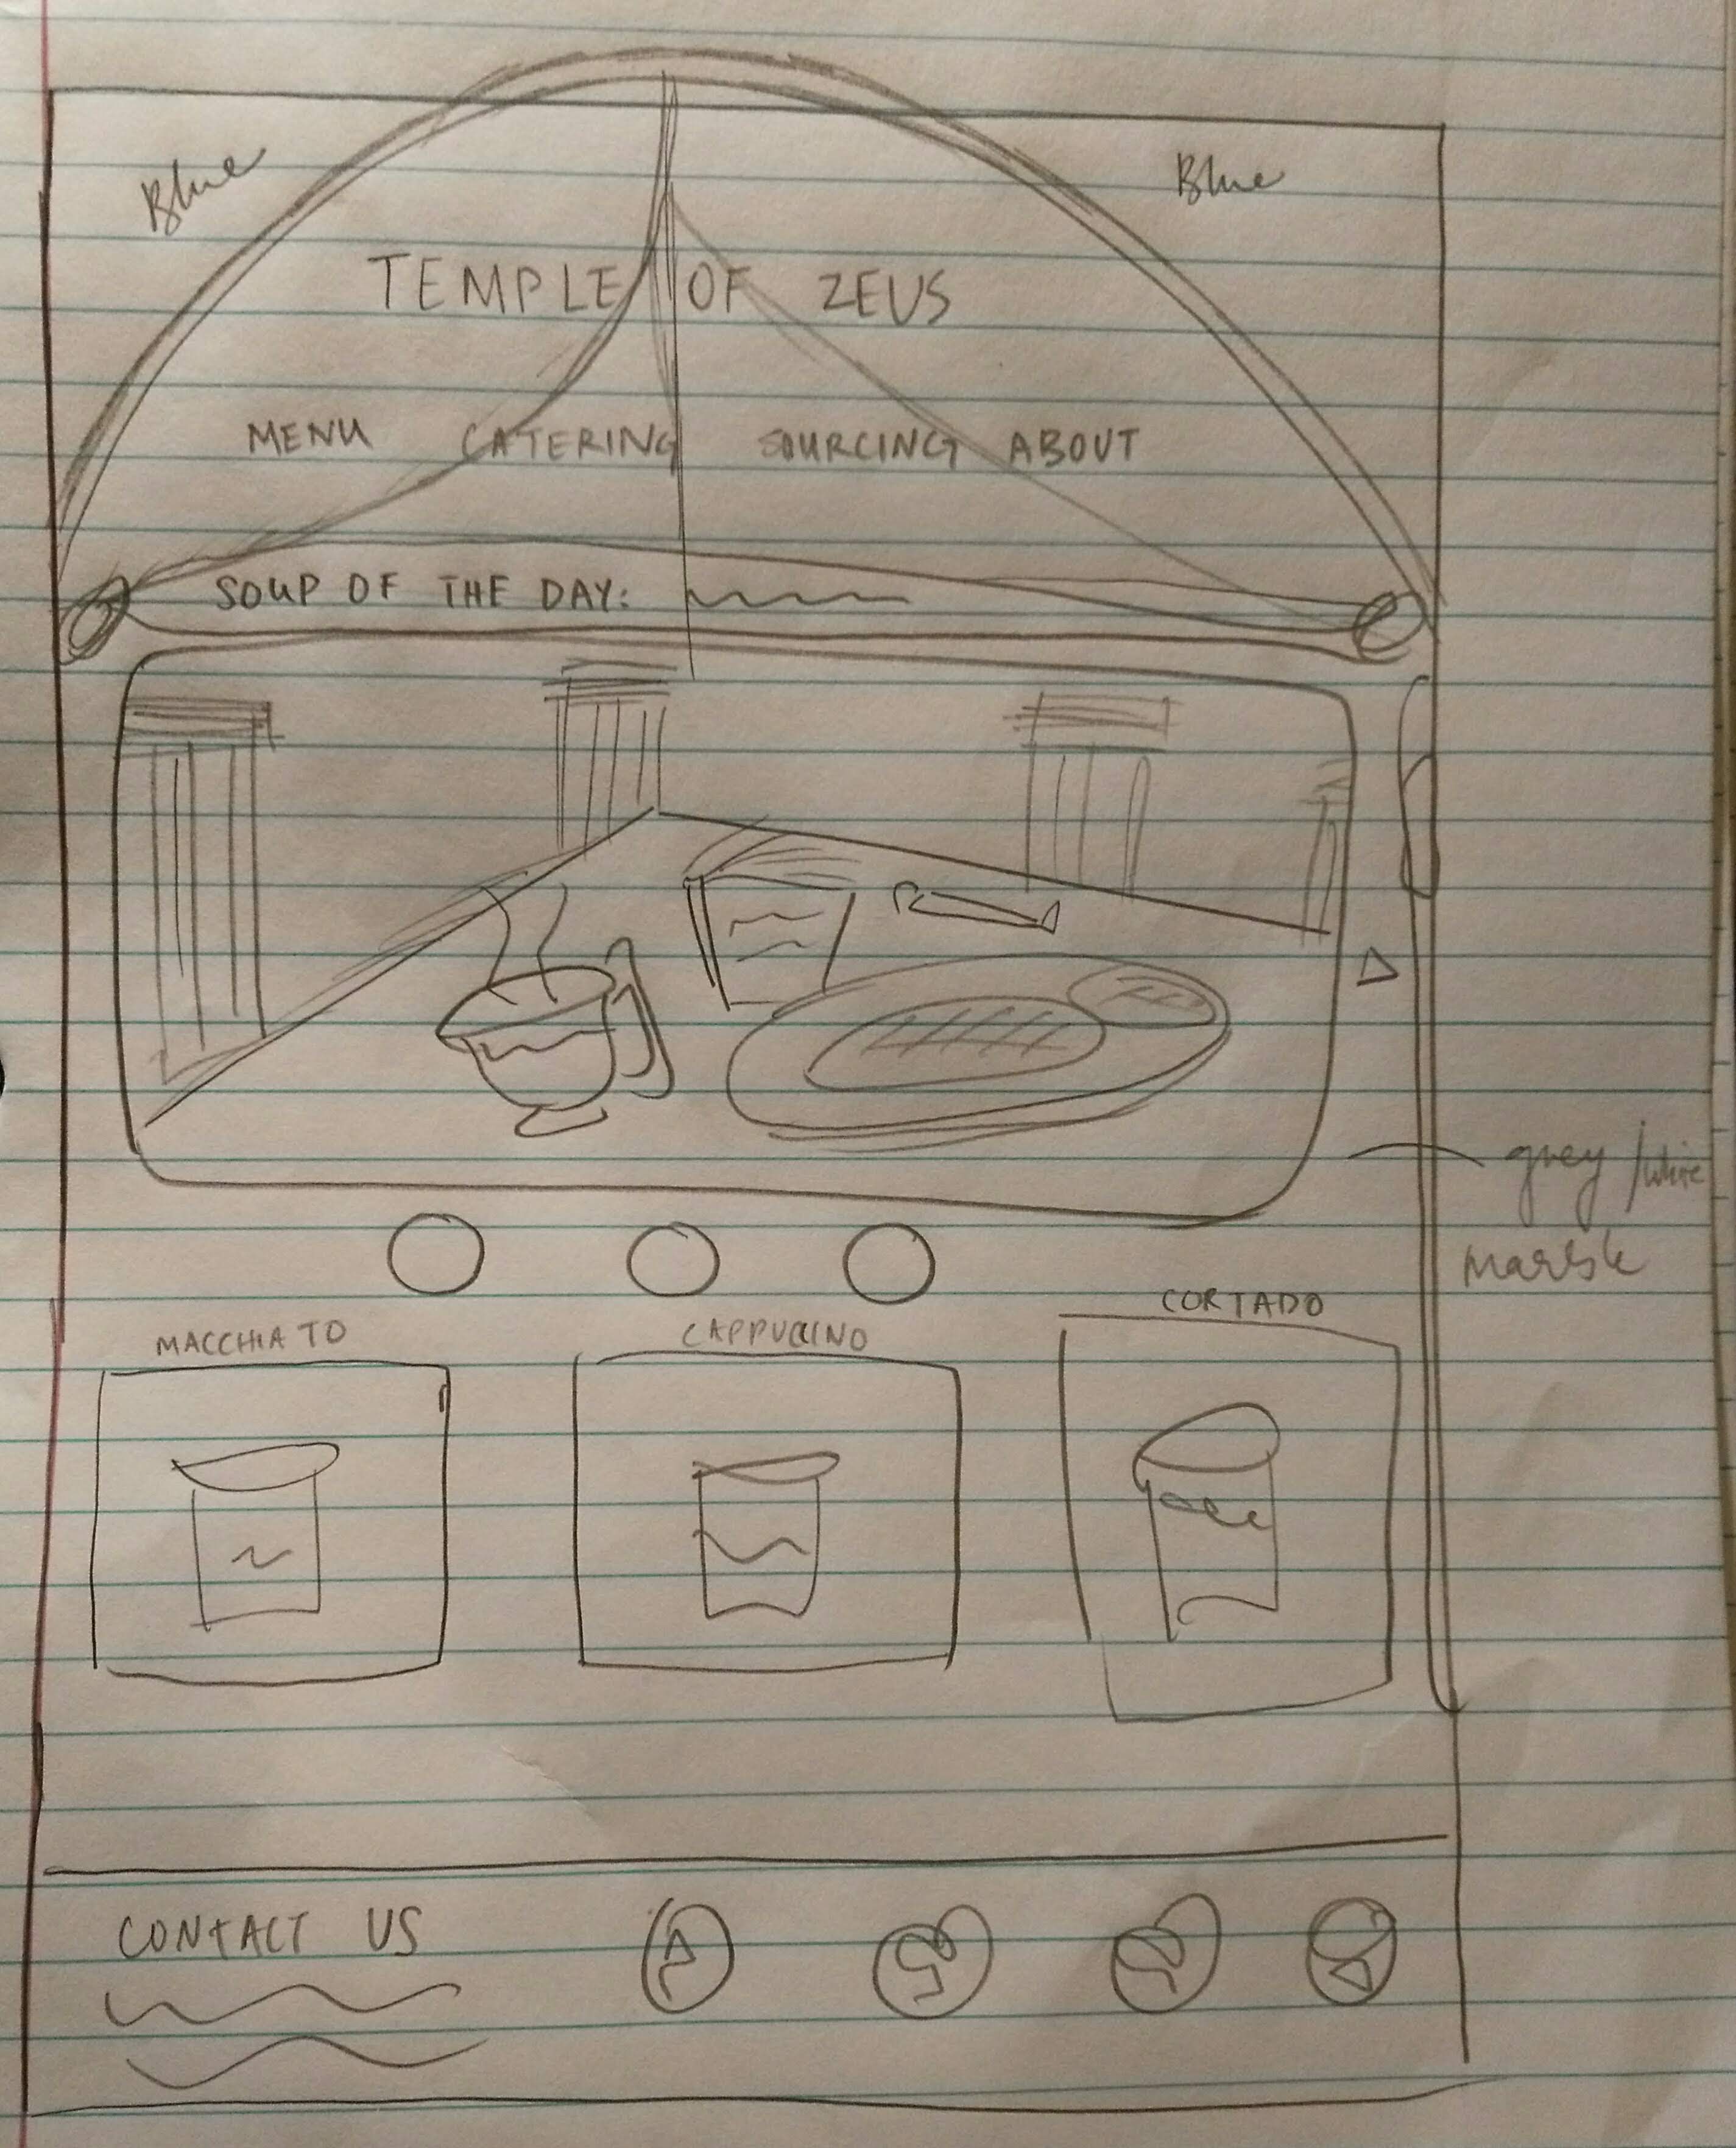 Blue
Blue
TEMPLE OF ZEUS
MENU CATERING SOURCING ABOUT
SOUP OF THE DAY:
grey / white
marble
MACCHIATO
CAPPUCCINO
CORTADO
CONTACT US